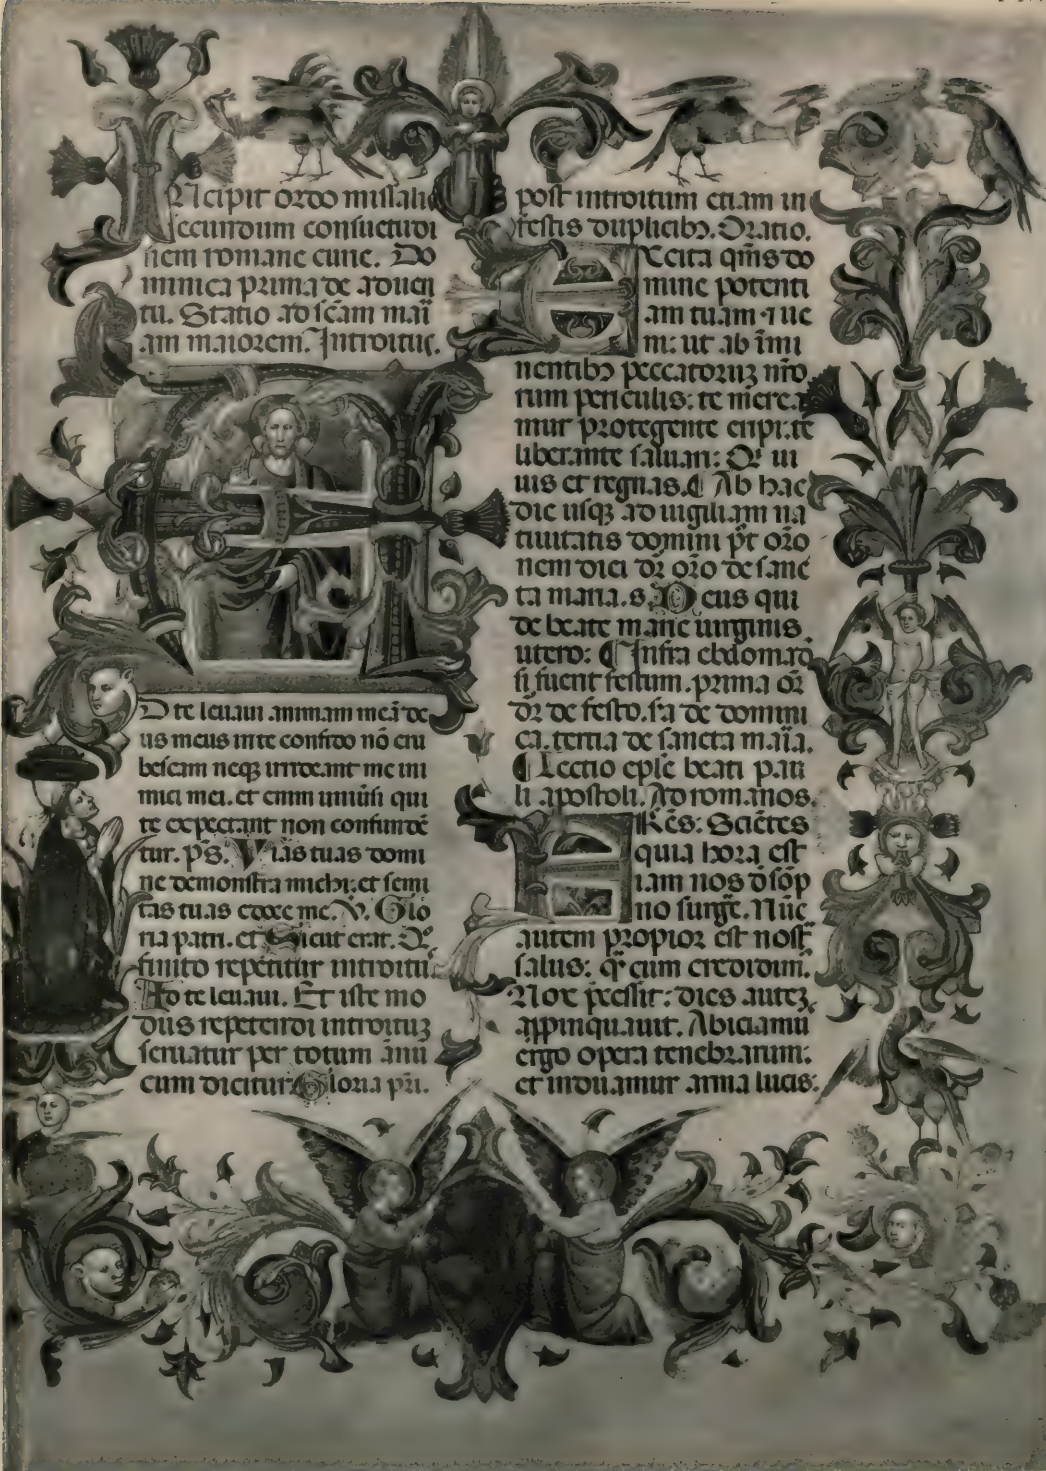 Incipit ordo missali
secundum consuetudi
nem romane curie. Do
minica prima de aduen
tu. Statio ad scam mari
am maiorem. Introitus.
AD te leuaui animam meā de
us meus in te confido nō eru
bescam neqꝫ irrideant me ini
mici mei. et enim uniūsi qui
te expectant non confundē
tur. p̄s. Vias tuas domi
ne demonstra michi: et semi
tas tuas edoce me. V̄. Glo
ria patri. et Sicut erat. Q̄
finito repetitur introitū
Ad te leuaui. Et iste mo
dus repetendi introituꝫ
seruatur per totum annū
cum dicitur Gloria pr̄i.
post introitum etiam in
festis duplicibꝫ. Oratio.
EXcita qm̄s do
mine potenti
am tuam ⁊ ue
ni: ut ab īmi
nentibꝫ peccatoruꝫ nr̄o
rum periculis: te merea
mur protegente eripi: te
liberante saluari: Q̄ ui
uis et regnas. ¶ Ab hac
die usqꝫ ad uigiliam na
tiuitatis domini p̄t or̄o
nem diei dr̄ or̄o de sanc
ta maria. s. Deus qui
de beate marie uirginis
utero: ¶ Infra ebdomadā
si fuerit festum. prima or̄
dr̄ de festo. s̄a de domini
ca. tertia de sancta maria.
¶ Lectio ep̄le beati pau
li apostoli. Ad romanos.
FRēs: Scientes
quia hora est
iam nos d̄ sōp
no surge. Nūc
autem propior est nost̄
salus: q̄ cum credidim̄.
Nox p̄cessit: dies auteꝫ
appinquauit. Abiciamū
ergo opera tenebrarum:
et induamur arma lucis: